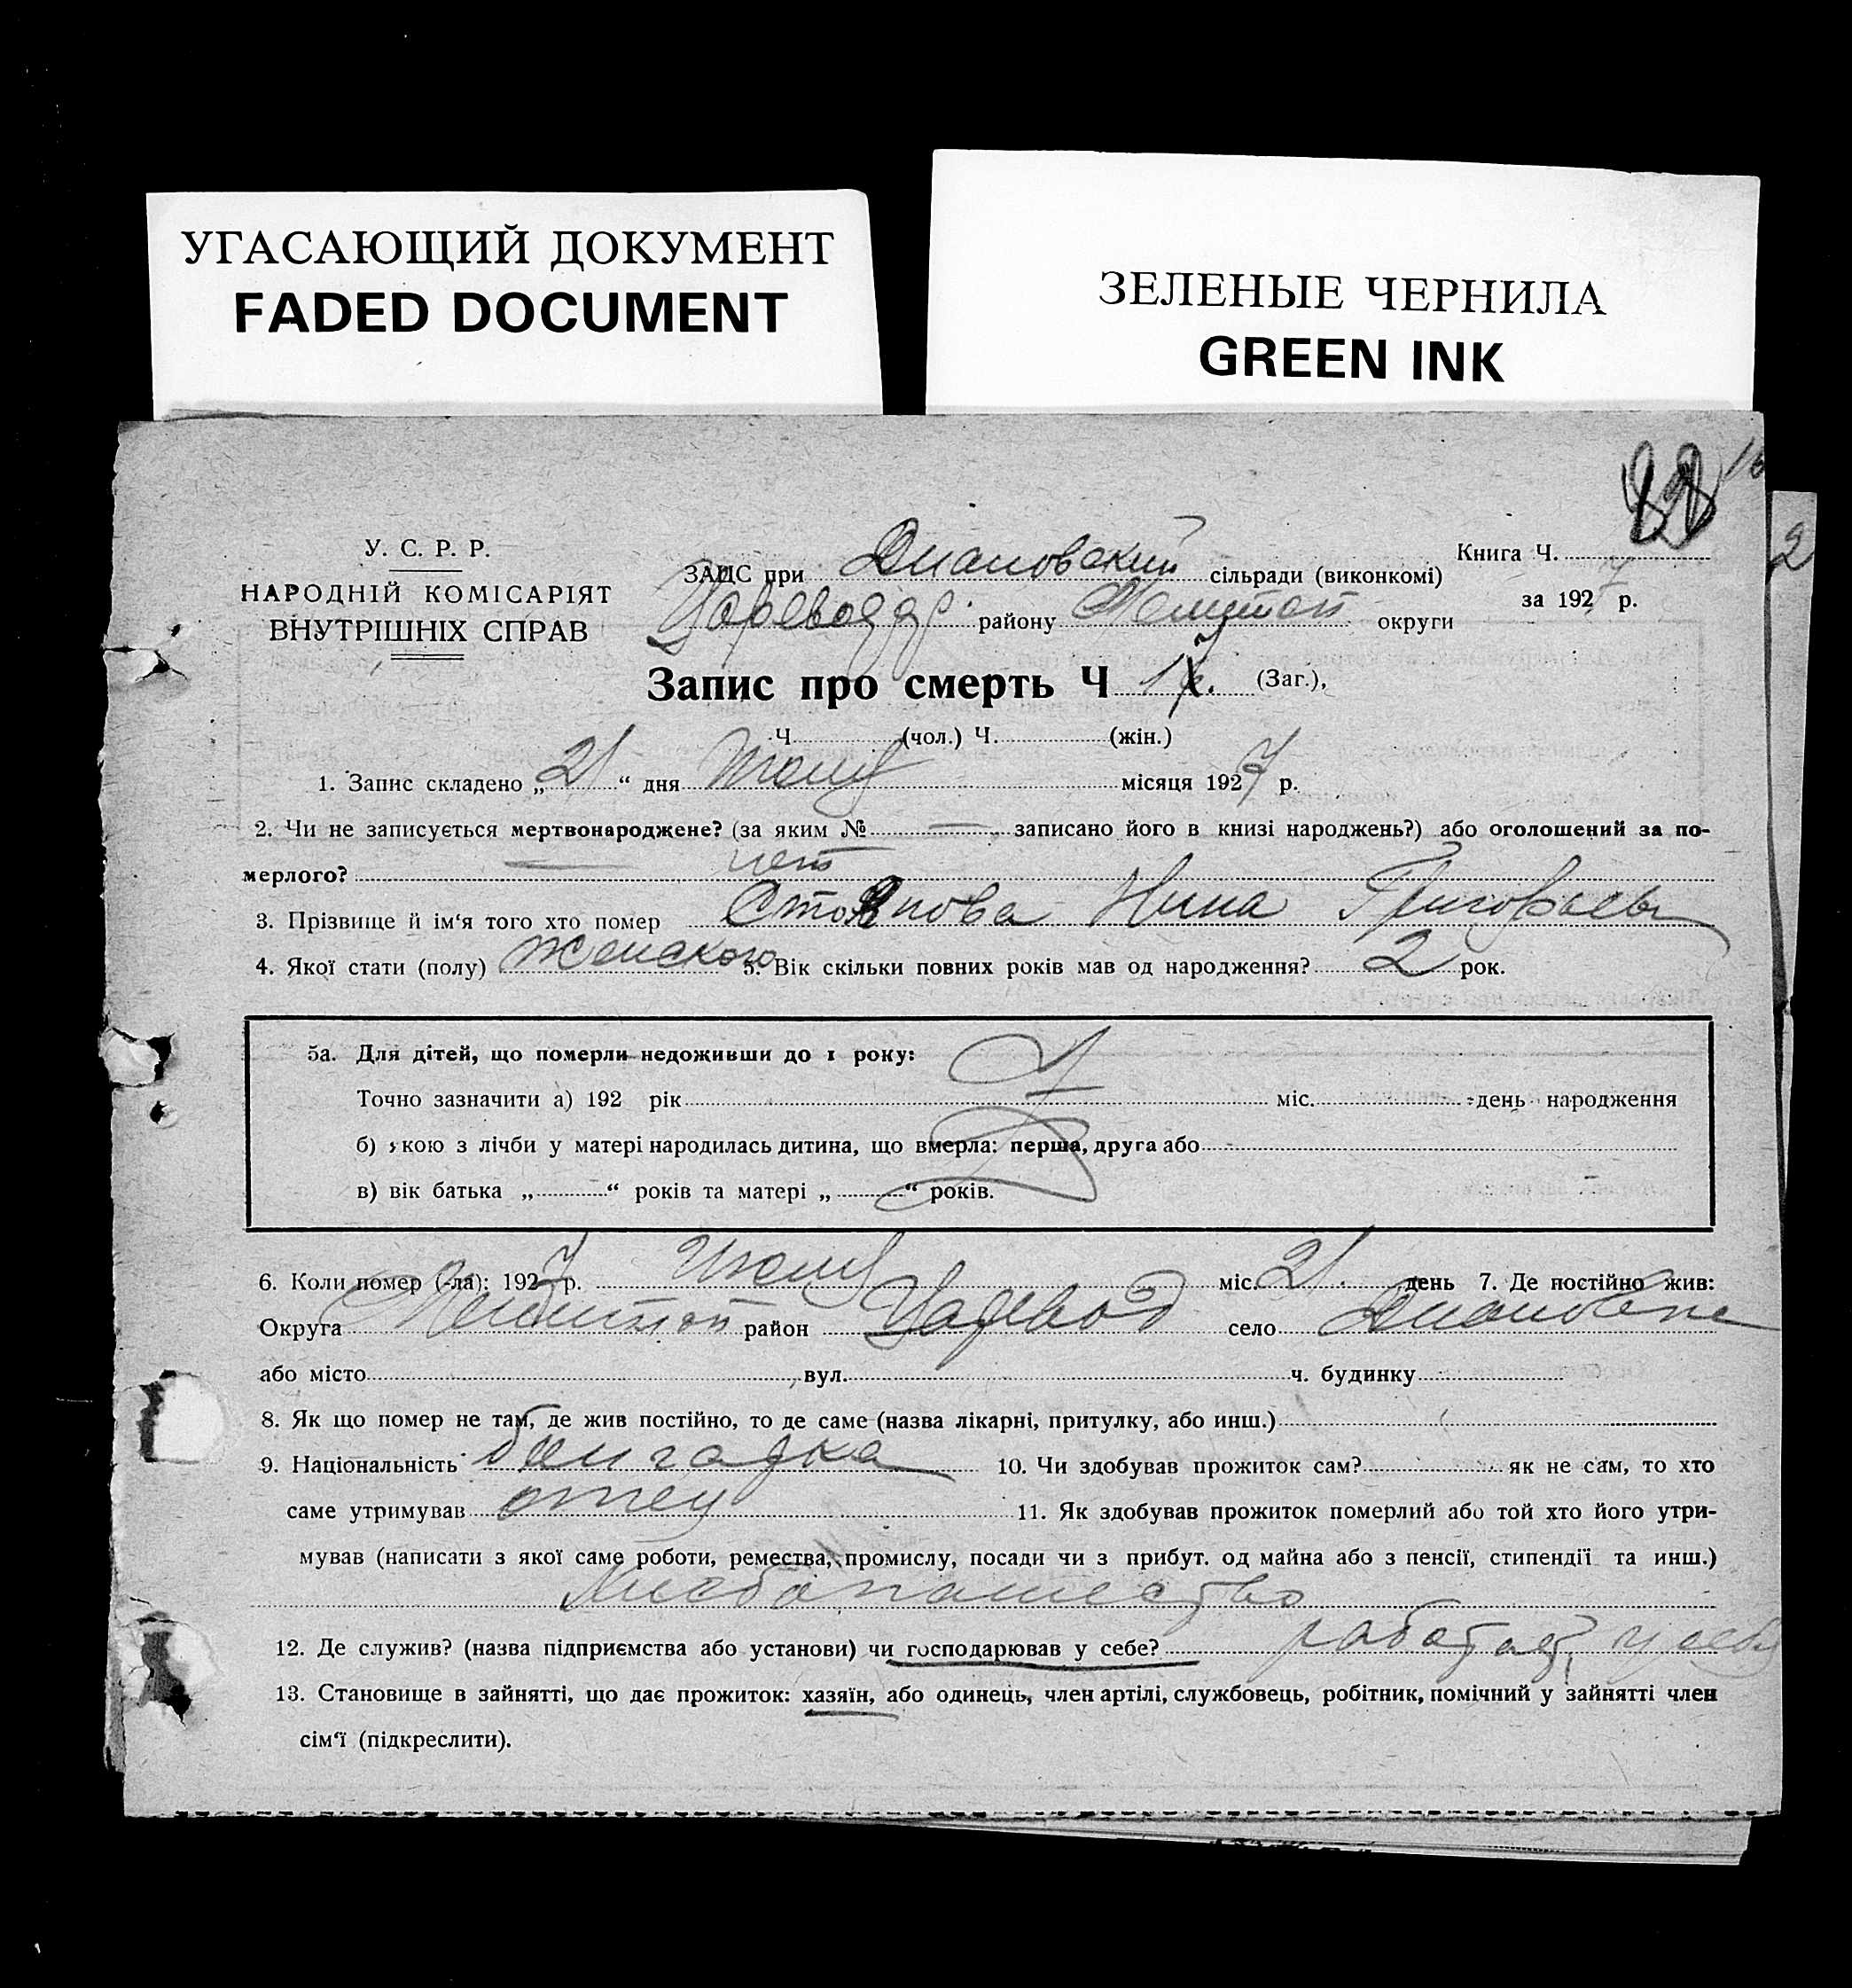 УГАСАЮЩИЙ ДОКУМЕНТ
FADED DOCUMENT
ЗЕЛЕНЫЕ ЧЕРНИЛА
GREEN INK
2
У. С. Р. Р.
НАРОДНІЙ КОМІСАРІЯТ
ВНУТРІШНІХ СПРАВ
Книга Ч.
за 1927 р.
ЗАЦС при Диановский сільради (виконкомі)
району округи
Запис про смерть Ч (Заг.),
Ч. (чол.) Ч. (жін.)
1. Запис складено „21“ дня місяця 1927 р.
2. Чи не записується мертвонароджене? (за яким № — записано його в книзі народжень?) або оголошений за по-
мерлого? нет
3. Прізвище й ім‘я того хто помер Стоянова Нина Григорьевн
4. Якої стати (полу) Женского 5. Вік скільки повних років мав од народження? 2 рок.
5а. Для дітей, що померли недоживши до 1 року:
Точно зазначити а) 192 рік міс. день народження
б) якою з лічби у матері народилась дитина, що вмерла: перша, друга або
в) вік батька „ “ років та матері „ “ років.
6. Коли помер (-ла): 1927 р. міс. 21. день 7. Де постійно жив:
Округа район Царевод село Диановка
або місто вул. ч. будинку
8. Як що помер не там, де жив постійно, то де саме (назва лікарні, притулку, або инш.)
9. Національність болгарка 10. Чи здобував прожиток сам? як не сам, то хто
саме утримував отец 11. Як здобував прожиток померлий або той хто його утри-
мував (написати з якої саме роботи, ремества, промислу, посади чи з прибут. од майна або з пенсії, стипендії та инш.)
Хлебопашество
12. Де служив? (назва підприємства або установи) чи господарював у себе? работал у себя
13. Становище в зайнятті, що дає прожиток: хазяїн, або одинець, член артілі, службовець, робітник, помічний у зайнятті член
сім‘ї (підкреслити).